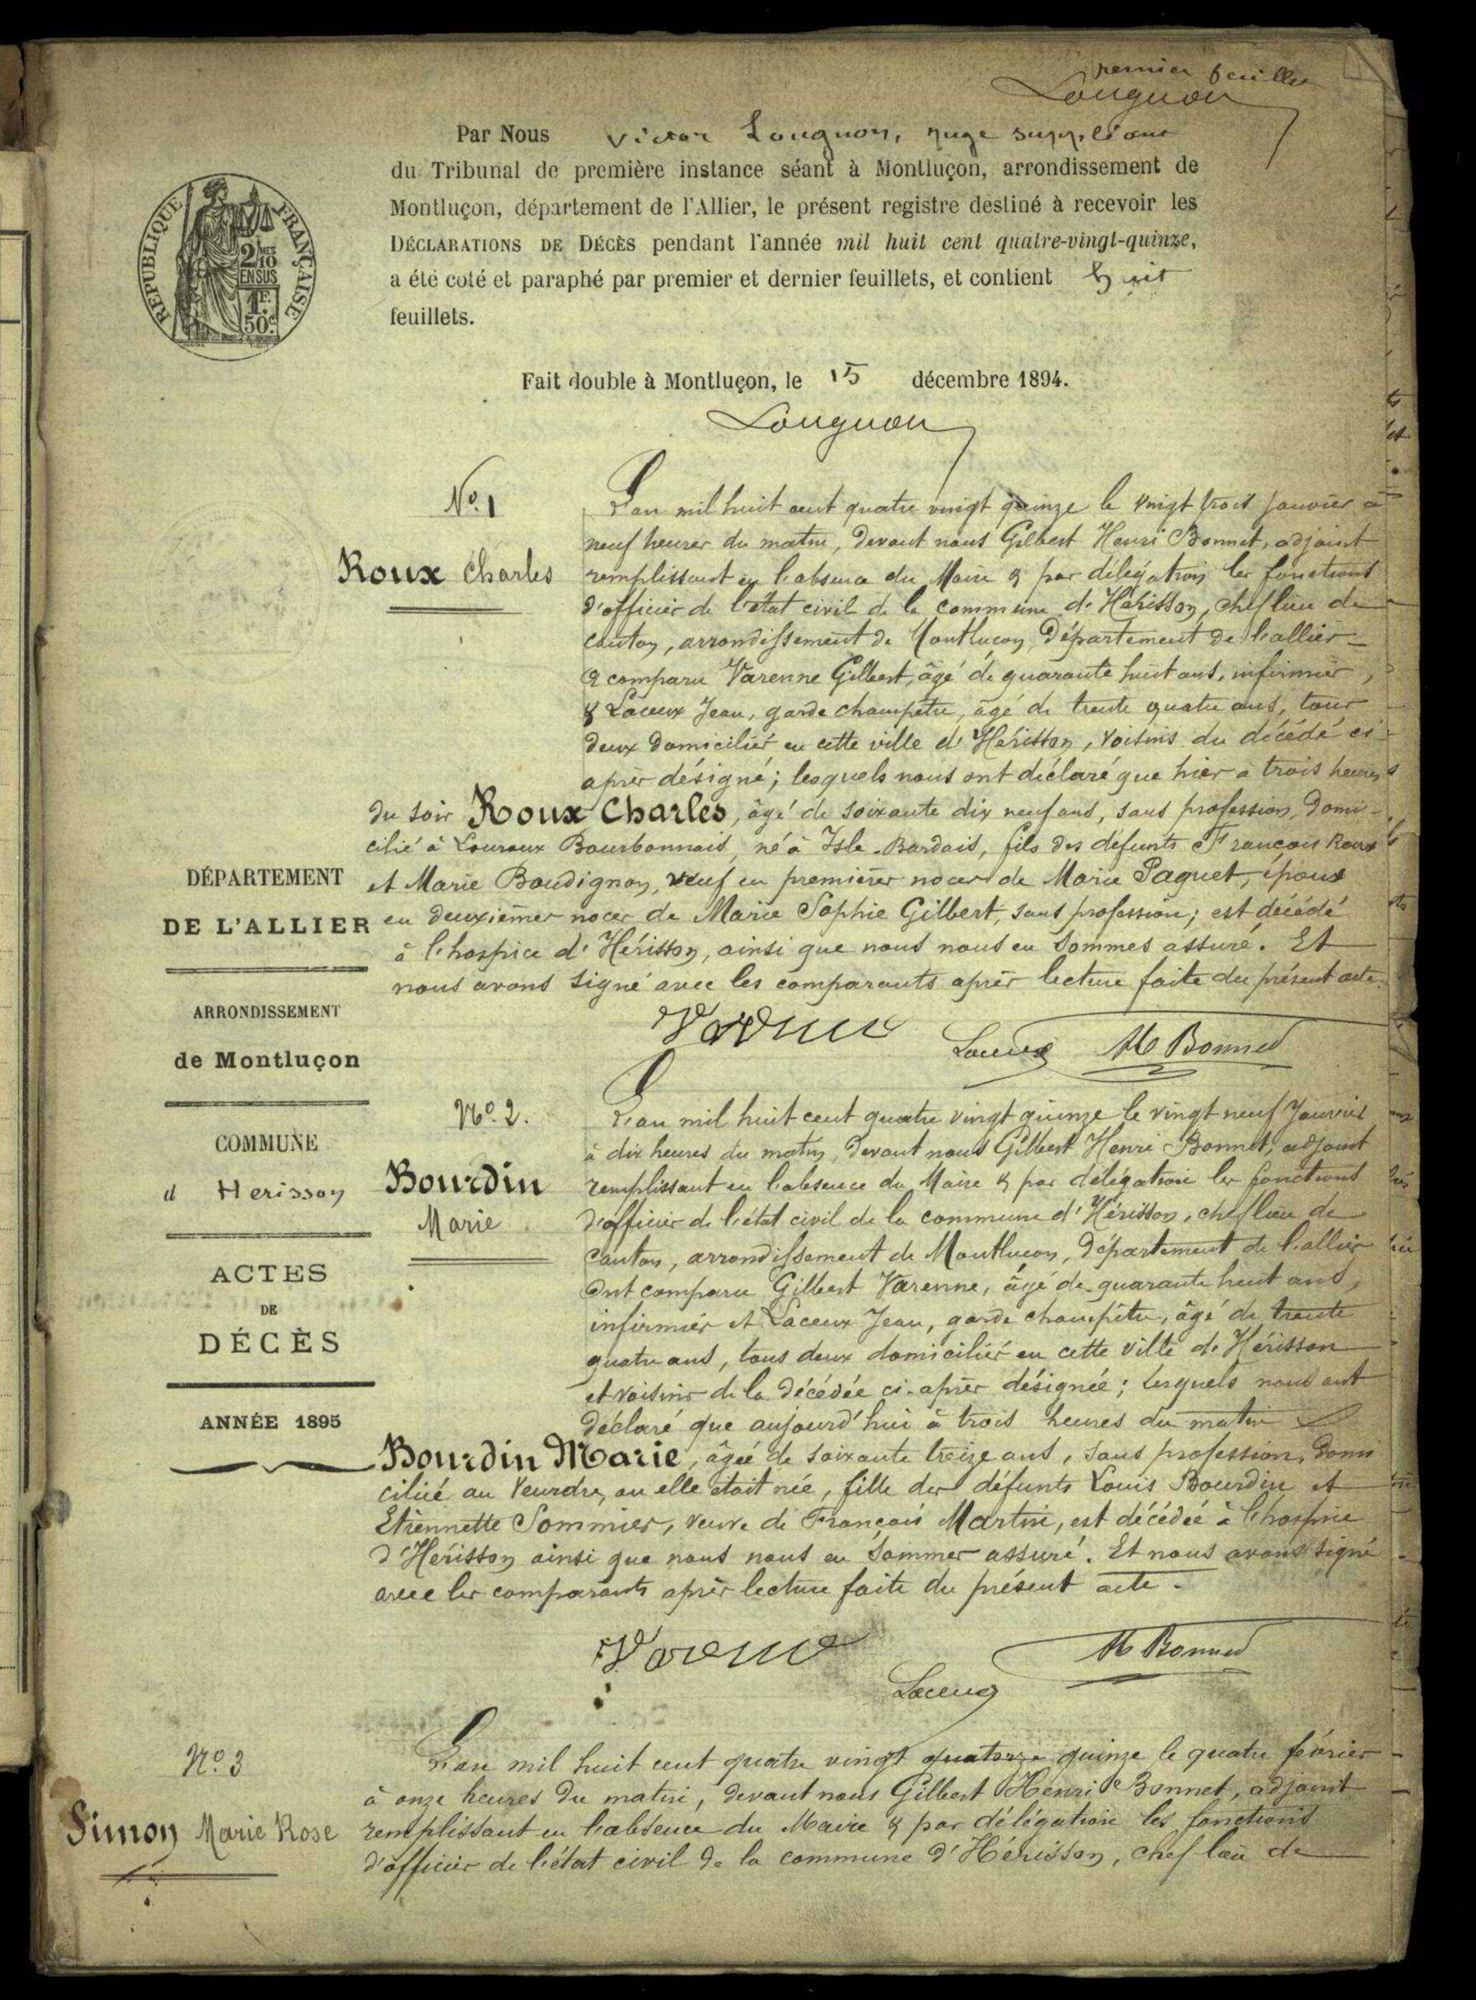 premier feuillet
Lougnon
Par Nous Victor Lougnon, juge suppléant
du Tribunal de première instance séant à Montluçon, arrondissement de
Montluçon, département de l'Allier, le présent registre destiné à recevoir les
DÉCLARATIONS DE DÉCÈS pendant l'année mil huit cent quatre-vingt-quinze,
a été coté et paraphé par premier et dernier feuillets, et contient huit
feuillets.
RÉPUBLIQUE FRANÇAISE
2/10
EN SUS
1F
50c
Fait double à Montluçon, le 15 décembre 1894.
Lougnon
No. 1
Roux Charles
L'an mil huit cent quatre vingt quinze le vingt trois janvier à
neuf heures du matin, devant nous Gilbert Henri Bonnet, adjoint
remplissant en l'absence du Maire & par délégation les fonctions
d'officier de l'état civil de la commune d'Hérisson, chef lieu de
canton, arrondissement de Montluçon, Département de l'allier
a comparu Varenne Gilbert, âgé de quarante huit ans, infirmier,
& Laceux Jean, garde champêtre, âgé de trente quatre ans, tous
deux domiciliés en cette ville d'Hérisson, voisins du décédé ci-
après désigné; lesquels nous ont déclaré que hier à trois heures
du soir Roux Charles, âgé de soixante dix neuf ans, sans profession, domi-
cilié à Louroux Bourbonnais, né à Isle-Bardais, fils des défunts François Roux
et Marie Boudignon, veuf en premières noces de Marie Paquet, époux
en deuxièmes noces de Marie Sophie Gilbert, sans profession; est décédé
à l'hospice d'Hérisson, ainsi que nous nous en sommes assuré. Et
nous avons signé avec les comparants après lecture faite du présent acte.
Varenne
Laceux H Bonnet
DÉPARTEMENT
DE L'ALLIER
ARRONDISSEMENT
de Montluçon
COMMUNE
d Herisson
ACTES
DE
DÉCÈS
ANNÉE 1895
No. 2.
Bourdin
Marie
L'an mil huit cent quatre vingt quinze le vingt neuf Janvier
à dix heures du matin, devant nous Gilbert Henri Bonnet, adjoint
remplissant en l'absence du Maire & par délégation les fonctions
d'officier de l'état civil de la commune d'Hérisson, chef lieu de
canton, arrondissement de Montluçon, Département de l'allier
ont comparu Gilbert Varenne, âgé de quarante huit ans,
infirmier et Laceux Jean, garde champêtre, âgé de trente
quatre ans, tous deux domiciliés en cette ville d'Hérisson
et voisins de la décédée ci-après désignée; lesquels nous ont
déclaré que aujourd'hui à trois heures du matin
Bourdin Marie, âgée de soixante treize ans, sans profession, domi
ciliée au Veurdre, ou elle était née, fille des défunts Louis Bourdin et
Etiennette Sommier, veuve de François Martin, est décédée à l'hospice
d'Hérisson ainsi que nous nous en sommes assuré. Et nous avons signé
avec les comparants après lecture faite du présent acte.
Varenne
H Bonnet
Laceux
No. 3
Simon Marie Rose
L'an mil huit cent quatre vingt quatorze quinze le quatre février
à onze heures du matin, devant nous Gilbert Henri Bonnet, adjoint
remplissant en l'absence du Maire & par délégation les fonctions
d'officier de l'état civil de la commune d'Hérisson, chef lieu de